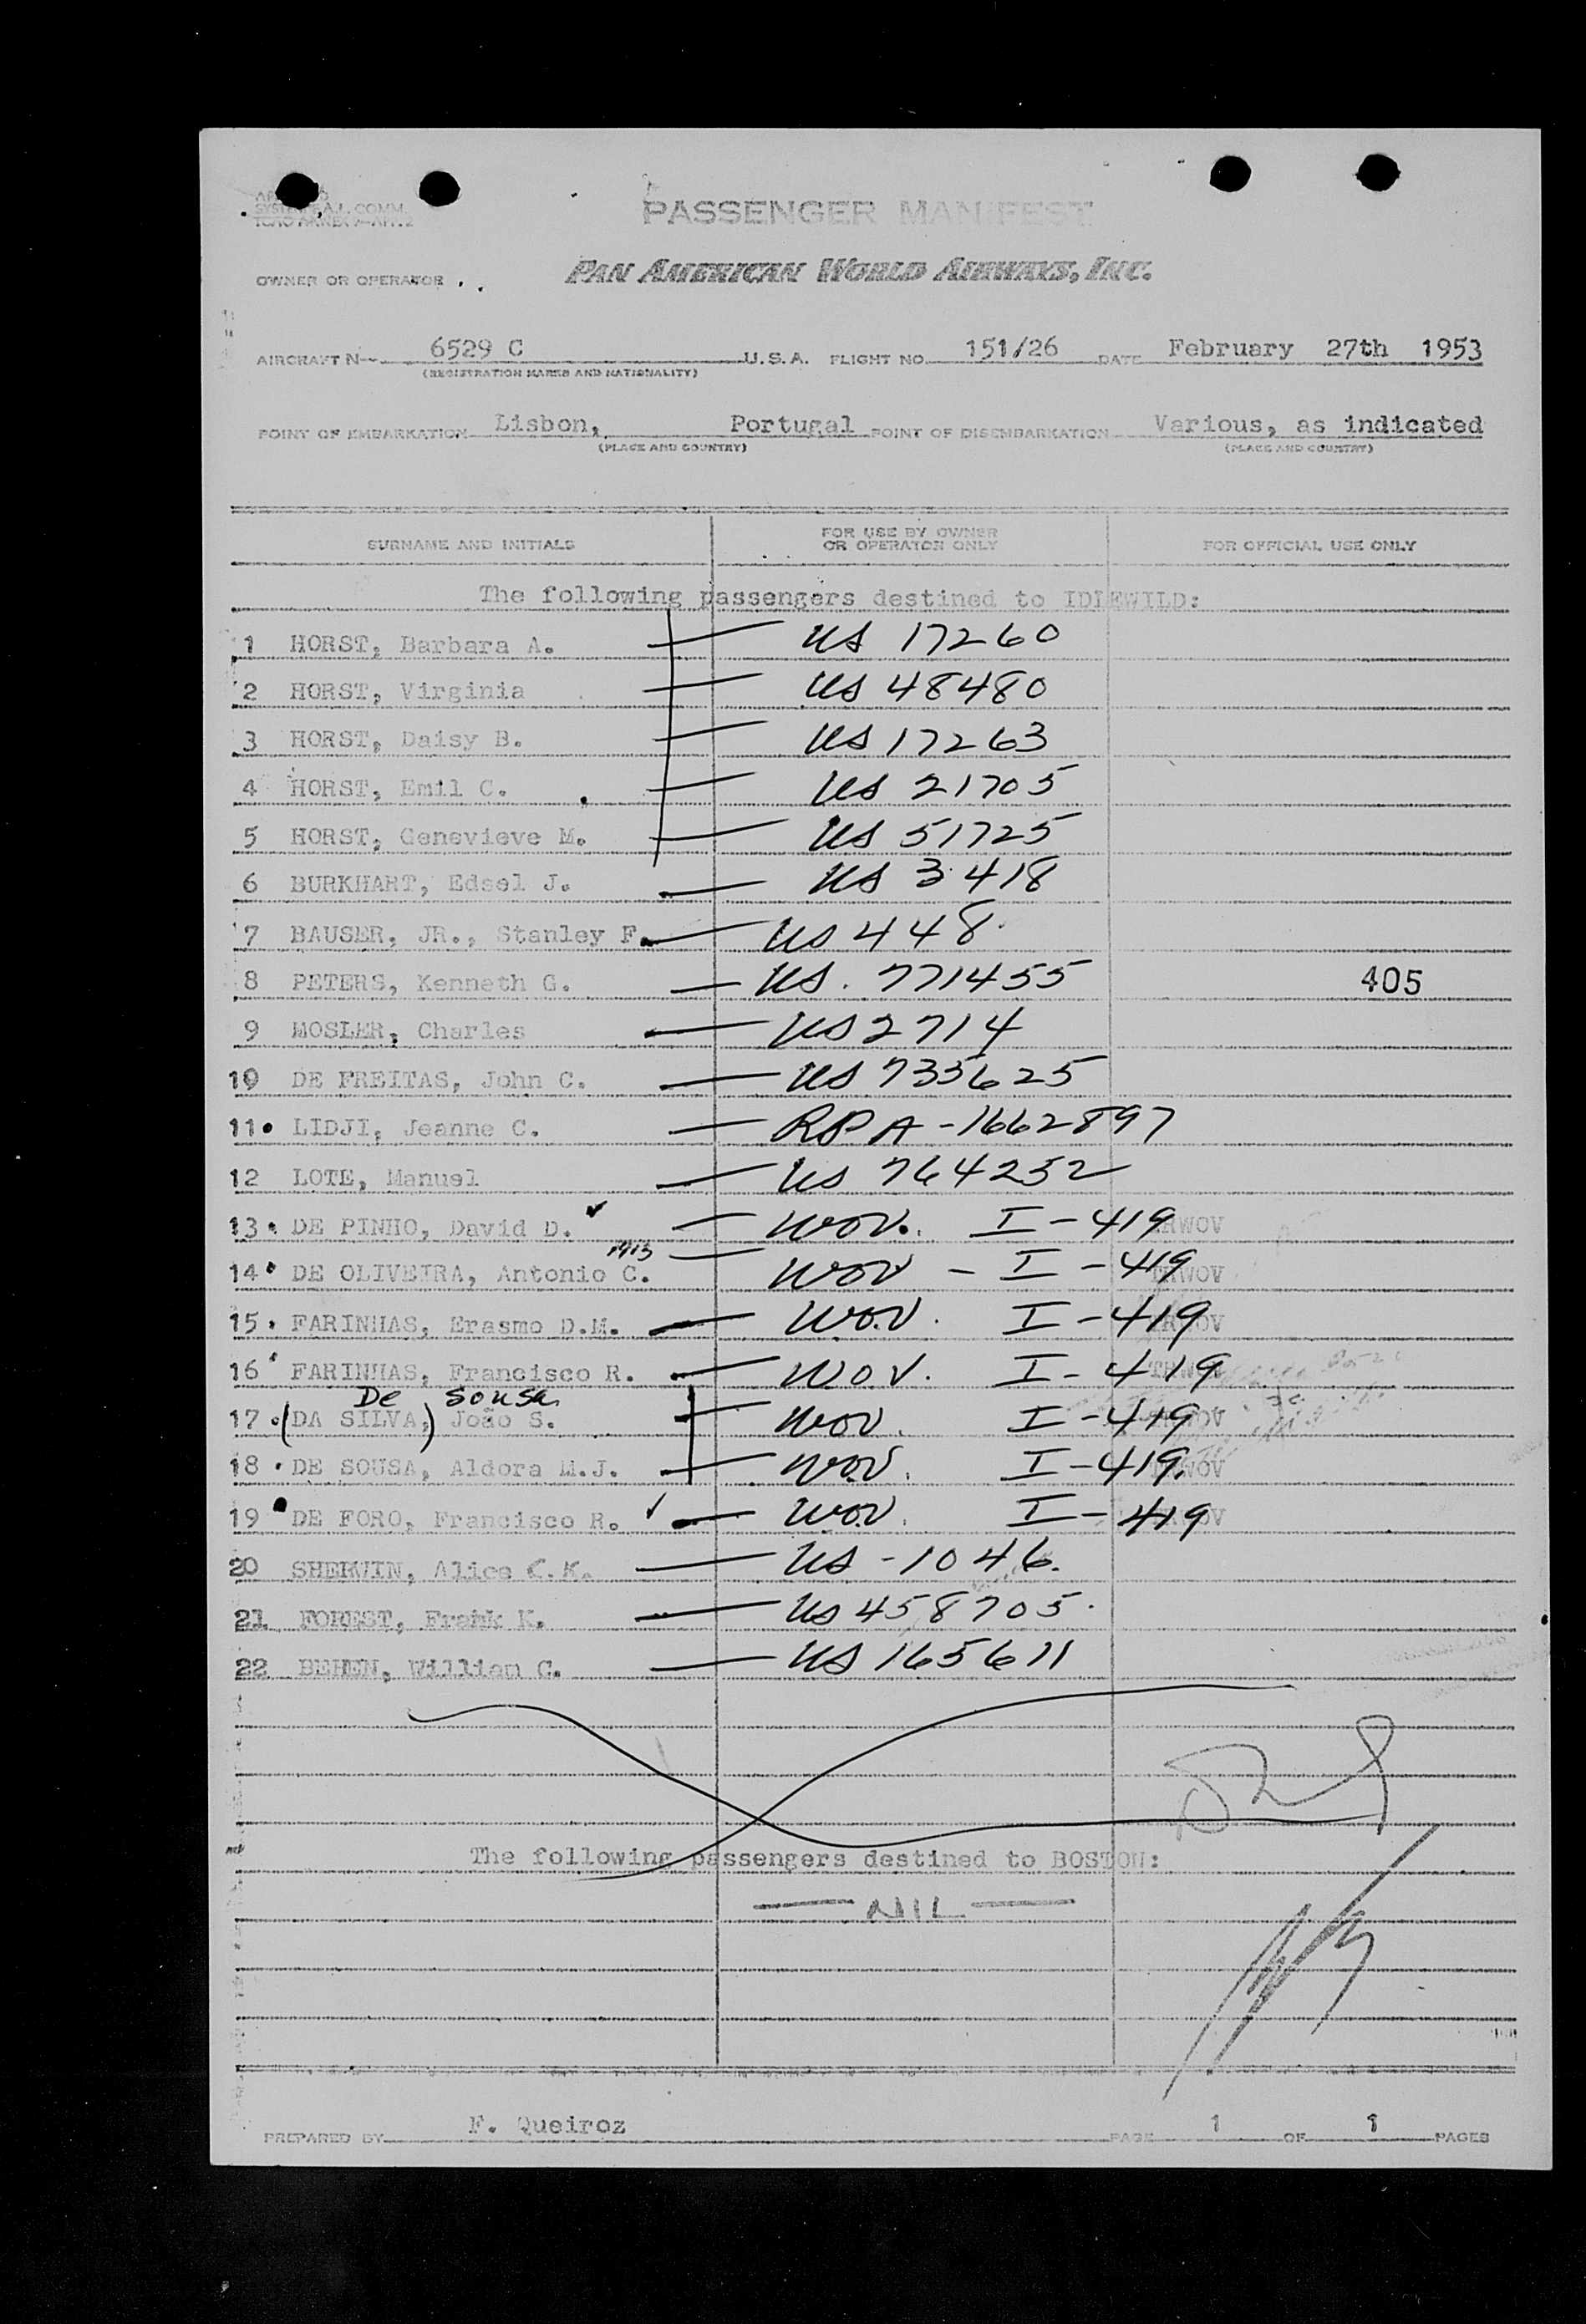 SYSTEM F.A.L. COMM.
ICAO ANNEX 9-APP. 2
PASSENGER MANIFEST
OWNER OR OPERATOR . . PAN AMERICAN WORLD AIRWAYS, INC.
AIRCRAFT N-- 6529 C U.S.A. FLIGHT NO. 151/26 DATE February 27th 1953
(REGISTRATION MARKS AND NATIONALITY)
POINT OF EMBARKATION Lisbon, Portugal POINT OF DISEMBARKATION Various, as indicated
(PLACE AND COUNTRY) (PLACE AND COUNTRY)
SURNAME AND INITIALS FOR USE BY OWNER OR OPERATOR ONLY FOR OFFICIAL USE ONLY
The following passengers destined to IDLEWILD:
1 HORST, Barbara A. — US 17260
2 HORST, Virginia — US 48480
3 HORST, Daisy B. — US 17263
4 HORST, Emil C. — US 21705
5 HORST, Genevieve M. — US 51725
6 BURKHART, Edsel J. — US 3418
7 BAUSER, JR., Stanley F. — US 448
8 PETERS, Kenneth G. — US. 771455 405
9 MOSLER, Charles — US 2714
10 DE FREITAS, John C. — US 735625
11. LIDJI, Jeanne C. — RPA-1662897
12 LOTE, Manuel — US 764252
13. DE PINHO, David D. ✓ — WOV. I-419 TRWOV
1913
14. DE OLIVEIRA, Antonio C. — WOV - I-419 TRWOV
15. FARINHAS, Erasmo D.M. — WOV. I-419 TRWOV
16 FARINHAS, Francisco R. — WOV. I-419 TRWOV
De Sousa
17. (DA SILVA,) João S. — WOV. I-419 TRWOV
18. DE SOUSA, Aldora M.J. — WOV. I-419 TRWOV
19 DE FORO, Francisco R. ✓ — WOV. I-419 TRWOV
20 SHERWIN, Alice C.K. — US-1046.
21 FOREST, Frank K. — US 458705.
22 BEHEN, William C. — US 165611
The following passengers destined to BOSTON:
— NIL —
PREPARED BY F. Queiroz PAGE 1 OF 1 PAGES